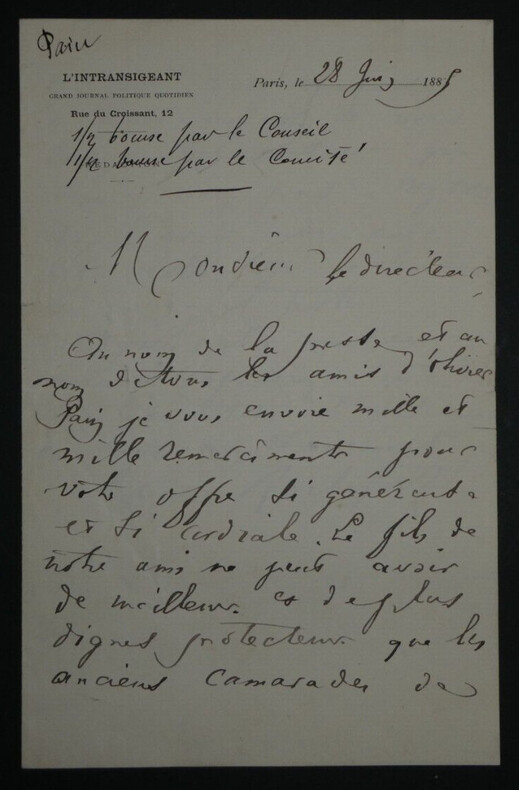 Pain
L'INTRANSIGEANT
GRAND JOURNAL POLITIQUE QUOTIDIEN
Rue du Croissant, 12
Paris, le 28 Juin 1885
1/2 bourse par le Conseil
1/4 bourse par le Comité
Monsieur le directeur
Au nom de la presse et au
nom de tous les amis d'Olivier
Pain je vous envoie mille et
mille remerciments pour
votre offre si généreuse
et si cordiale. Le fils de
notre ami ne peut avoir
de meilleurs et de plus
dignes protecteurs que les
anciens camarades de